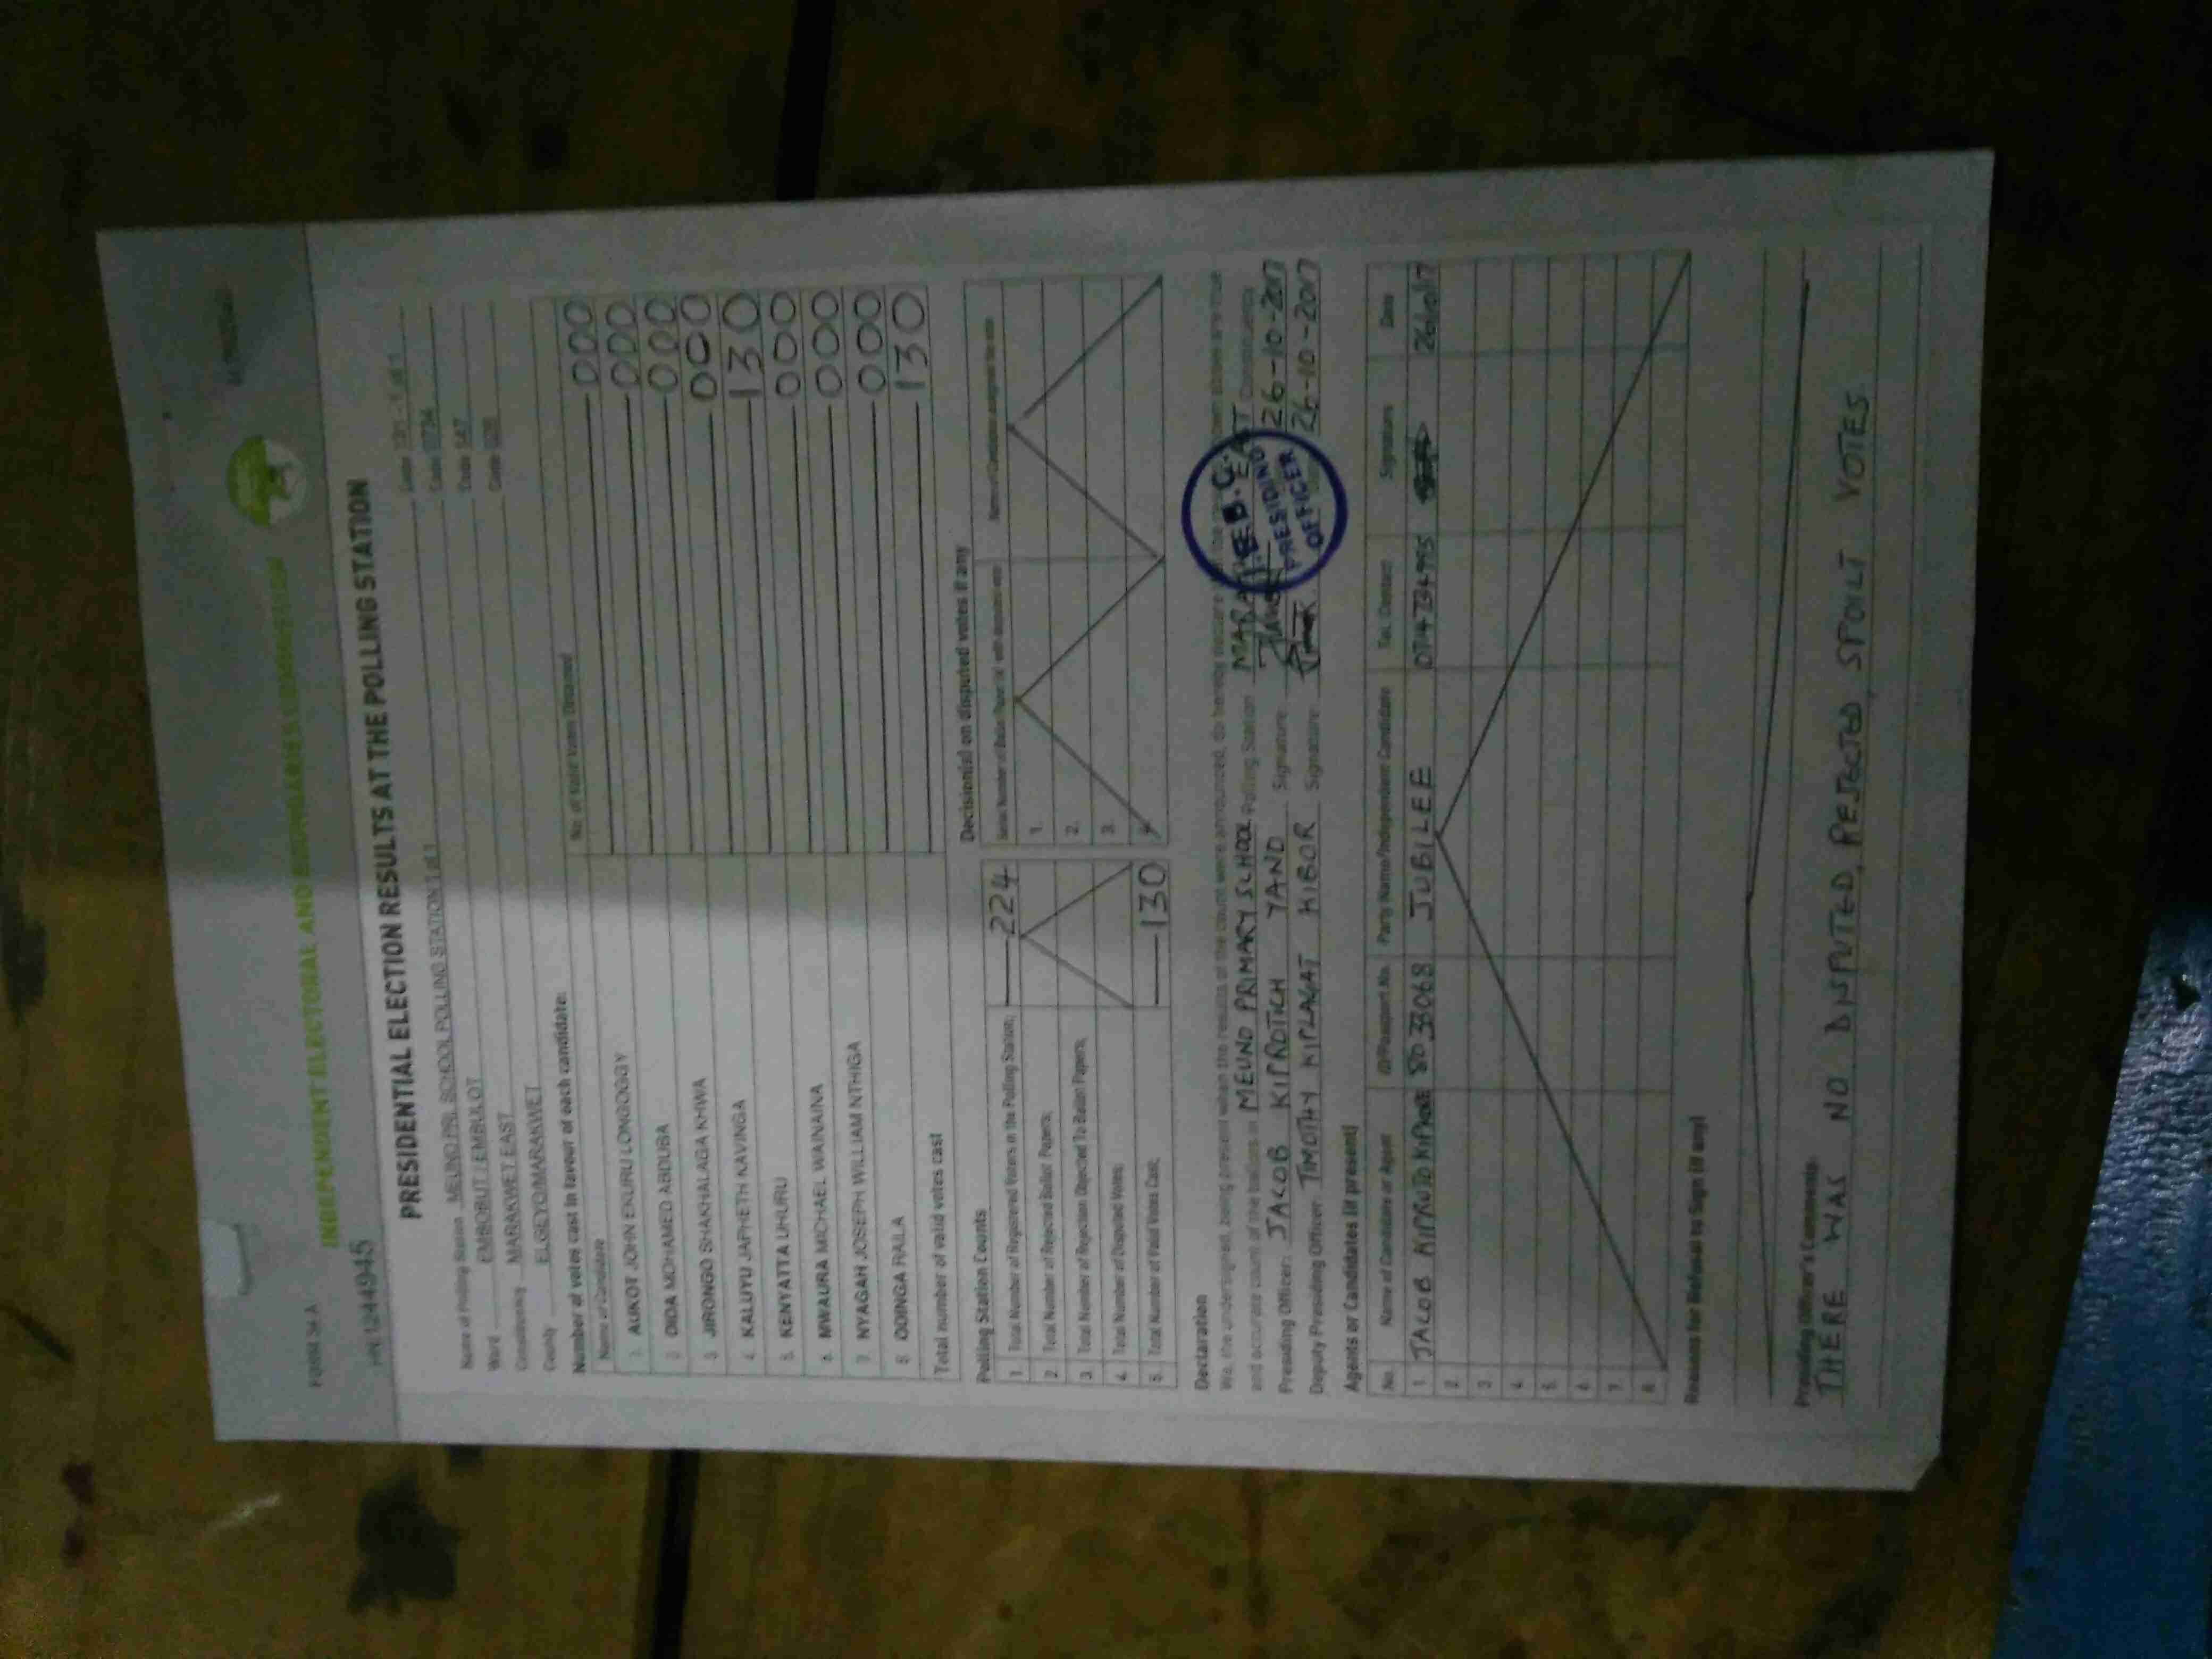 FORM 34A
INDEPENDENT ELECTORAL AND BOUNDARIES COMMISSION
1244945
PRESIDENTIAL ELECTION RESULTS AT THE POLLING STATION
Name of Polling Station MEUNO PRI. SCHOOL POLLING STATION 1 of 1 Code 1 of 1
Ward EMBOBUT / EMBULOT Code 0734
Constituency MARAKWET EAST Code 147
County ELGEYO/MARAKWET Code 028
Number of votes cast in favour of each candidate:
Name of Candidate No. of Valid Votes Obtained
1. AUKOT JOHN EKURU LONGOGGY 000
2. DIDA MOHAMED ABDUBA 000
3. JIRONGO SHAKHALAGA KHWA 000
4. KALUYU JAPHETH KAVINGA 000
5. KENYATTA UHURU 130
6. MWAURA MICHAEL WAINAINA 000
7. NYAGAH JOSEPH WILLIAM NTHIGA 000
8. ODINGA RAILA 000
Total number of valid votes cast 130
Polling Station Counts
1. Total Number of Registered Voters in the Polling Station; 224
2. Total Number of Rejected Ballot Papers;
3. Total Number of Rejection Objected To Ballot Papers;
4. Total Number of Disputed Votes;
5. Total Number of Valid Votes Cast; 130
Decision(s) on disputed votes if any
1.
2.
3.
4.
Declaration
We, the undersigned, being present when the results of the count were announced, do hereby declare that the results shown above are true
and accurate count of the ballots in MEUNO PRIMARY SCHOOL Polling Station Constituency
Presiding Officer: JACOB KIPROTICH YANO Signature: 26-10-2017
Deputy Presiding Officer: TIMOTHY KIPLAGAT KIBOR Signature: 26-10-2017
I.E.B.C.
PRESIDING
OFFICER
Agents or Candidates (if present)
No. Name of Candidate or Agent ID/Passport No. Party Name/Independent Candidate Tel. Contact Signature Date
1. JACOB JUBILEE
2.
3.
4.
5.
6.
7.
8.
Reasons for Refusal to Sign (if any)
Presiding Officer's Comments:
THERE WAS NO DISPUTED, REJECTED, SPOILT VOTES